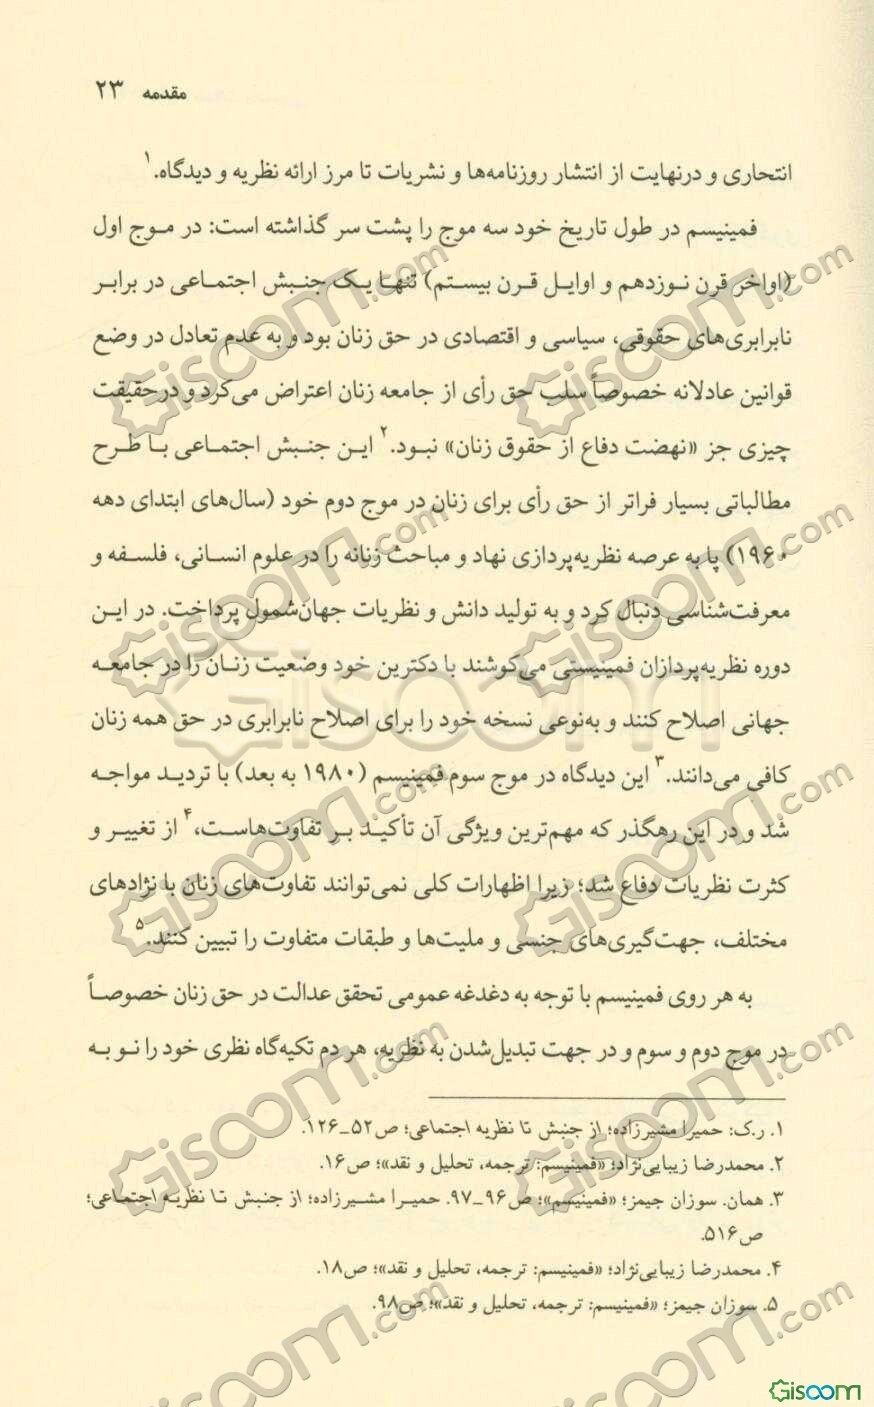 مقدمه ۲۳
انتحاری و درنهایت از انتشار روزنامه‌ها و نشریات تا مرز ارائه نظریه و دیدگاه.۱
فمینیسم در طول تاریخ خود سه موج را پشت سر گذاشته است: در موج اول
(اواخر قرن نوزدهم و اوایل قرن بیستم) تنها یک جنبش اجتماعی در برابر
نابرابری‌های حقوقی، سیاسی و اقتصادی در حق زنان بود و به عدم تعادل در وضع
قوانین عادلانه خصوصاً سلب حق رأی از جامعه زنان اعتراض می‌کرد و درحقیقت
چیزی جز «نهضت دفاع از حقوق زنان» نبود.۲ این جنبش اجتماعی با طرح
مطالباتی بسیار فراتر از حق رأی برای زنان در موج دوم خود (سال‌های ابتدای دهه
۱۹۶۰) پا به عرصه نظریه‌پردازی نهاد و مباحث زنانه را در علوم انسانی، فلسفه و
معرفت‌شناسی دنبال کرد و به تولید دانش و نظریات جهان‌شمول پرداخت. در این
دوره نظریه‌پردازان فمینیستی می‌کوشند با دکترین خود وضعیت زنان را در جامعه
جهانی اصلاح کنند و به‌نوعی نسخه خود را برای اصلاح نابرابری در حق همه زنان
کافی می‌دانند.۳ این دیدگاه در موج سوم فمینیسم (۱۹۸۰ به بعد) با تردید مواجه
شد و در این رهگذر که مهم‌ترین ویژگی آن تأکید بر تفاوت‌هاست،۴ از تغییر و
کثرت نظریات دفاع شد؛ زیرا اظهارات کلی نمی‌توانند تفاوت‌های زنان با نژادهای
مختلف، جهت‌گیری‌های جنسی و ملیت‌ها و طبقات متفاوت را تبیین کنند.۵
به هر روی فمینیسم با توجه به دغدغه عمومی تحقق عدالت در حق زنان خصوصاً
در موج دوم و سوم و در جهت تبدیل‌شدن به نظریه، هر دم تکیه‌گاه نظری خود را نو به
۱. ر.ک: حمیرا مشیرزاده؛ از جنبش تا نظریه اجتماعی؛ ص۵۲_۱۲۶.
۲. محمدرضا زیبایی‌نژاد؛ «فمینیسم: ترجمه، تحلیل و نقد»؛ ص۱۶.
۳. همان. سوزان جیمز؛ «فمینیسم»؛ ص۹۶_۹۷. حمیرا مشیرزاده؛ از جنبش تا نظریه اجتماعی؛
ص۵۱۶.
۴. محمدرضا زیبایی‌نژاد؛ «فمینیسم: ترجمه، تحلیل و نقد»؛ ص۱۸.
۵. سوزان جیمز؛ «فمینیسم: ترجمه، تحلیل و نقد»؛ ص۹۸.
Gisoom
Gisoom.com